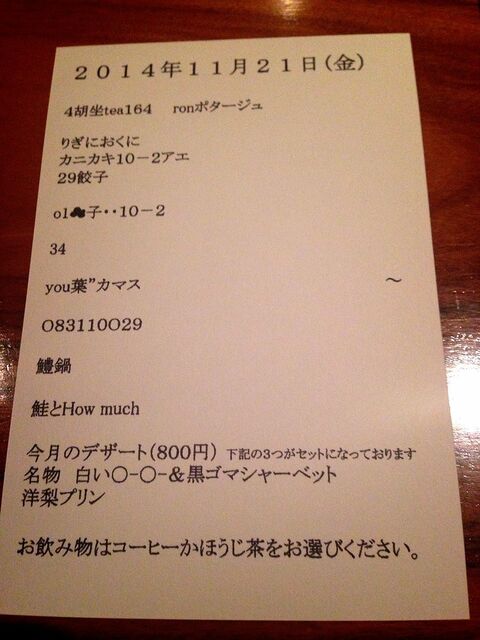 ２０１４年１１月２１日（金）
4胡坐tea164 ronポタージュ
りぎにおくに
カニカキ10－2アエ
29餃子
o1♣子・・10－2
34
you葉”カマス ～
O83110O29
鱧鍋
鮭とHow much
今月のデザート（800円） 下記の3つがセットになっております
名物 白い○-○-＆黒ゴマシャーベット
洋梨プリン
お飲み物はコーヒーかほうじ茶をお選びください。